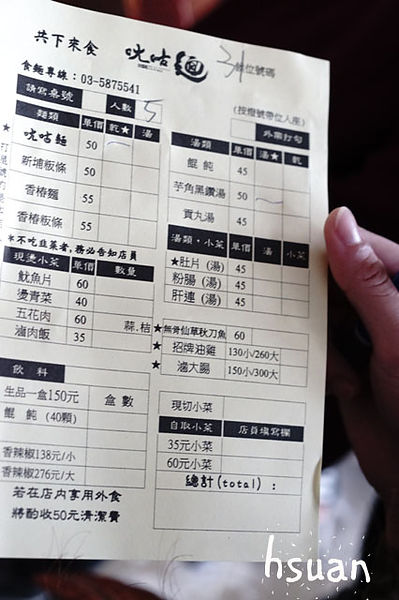 共下來食 咣咕麵 31 候位號碼
食麵專線：03-5875541
請寫桌號 人數 5 (按燈號帶位入座)
麵類 單價 乾★ 湯
咣咕麵 50
新埔粄條 50
香椿麵 55
香椿粄條 55
＊不吃韭菜者，務必告知店員
現燙小菜 單價 數量
魷魚片 60
燙青菜 40
五花肉 60 蒜.桔
滷肉飯 35
飲料
生品一盒150元 盒數
餛飩 (40顆)
香辣椒138元/小
香辣椒276元/大
若在店內享用外食
將酌收50元清潔費
外帶打勾
湯類 單價 湯★ 乾
餛飩 45
芋角黑鑽湯 50
貢丸湯 45
湯類．小菜 單價 湯 小菜
★肚片 (湯) 45
粉腸 (湯) 45
肝連 (湯) 45
★無骨仙草秋刀魚 60
★招牌油雞 130小/260大
★滷大腸 150小/300大
現切小菜
自取小菜 店員填寫欄
35元小菜
60元小菜
總計(total)：
hsuan